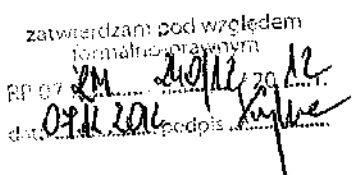 zatwierdzam pod względem
formalno-prawnym
RP 07 ZM 240/12 / 20 12 r.
dat. 07.12.2012 podpis